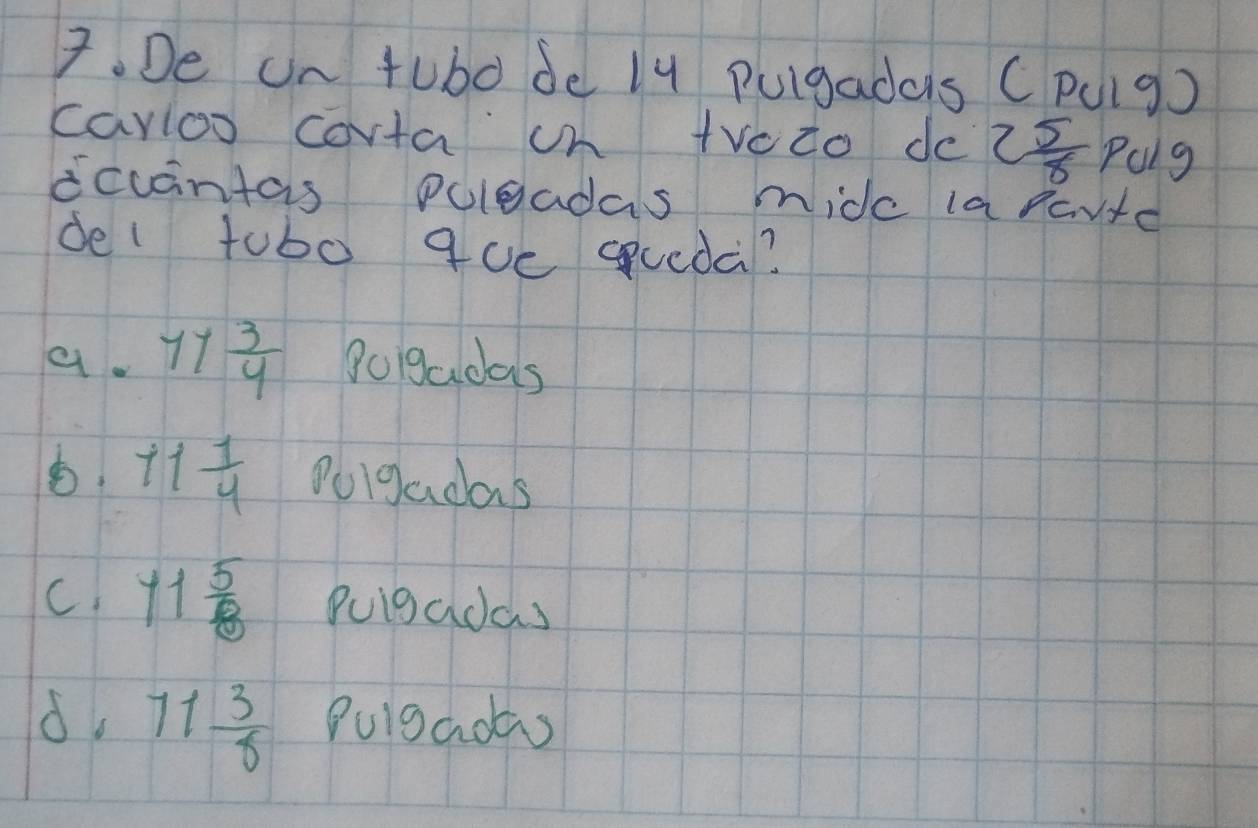 7. De un tubo de 14 Pulgadas (Pulg)
Carlos corta un trozo de 2 5/8 Pulg
¿cuántas Pulgadas mide la Parte
del tubo que queda?
a. 11 3/4 Pulgadas
b. 11 1/4 Pulgadas
c. 11 5/8 Pulgadas
d. 11 3/8 Pulgadas